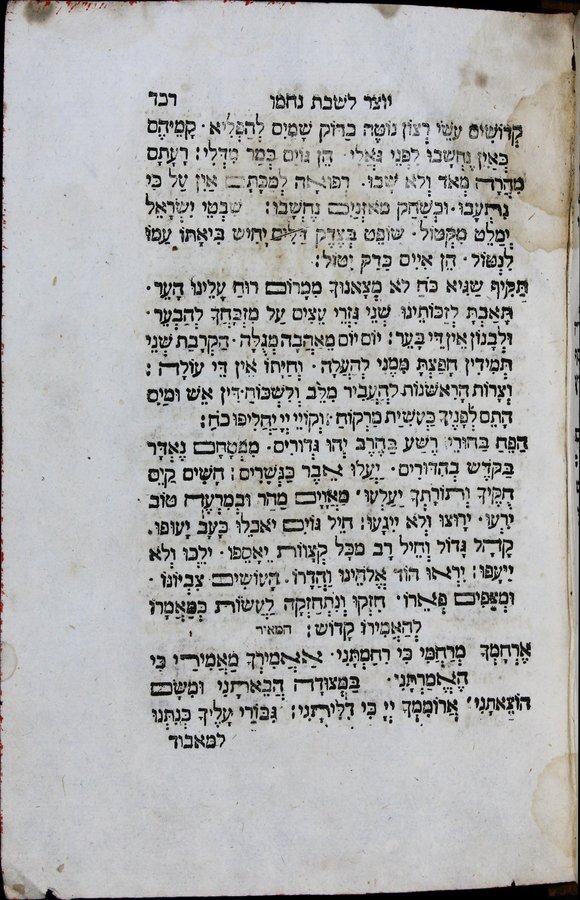 יוצר לשבת נחמו רכד
קְדוֹשִׁים עֹשֵׂי רְצוֹן נוֹטֶה כַדּוֹק שָׁמַיִם לְהַפְלִיא׃ קָמֵיהֶם
כְּאַיִן נֶחְשְׁבוּ לִפְנֵי גֹאֲלִי׃ הֵן גּוֹיִם כְּמַר מִדְּלִי׃ רָעָתָם
מְאֹד וְלֹא שָׁבוּ׃ רְפוּאָה לְמַכָּתָם אֵין עַל כִּי
נִתְעָבוּ׃ וּכְשַׁחַק מֹאזְנַיִם נֶחְשָׁבוּ׃ שִׁבְטֵי יִשְׂרָאֵל
יְמַלֵּט מִקְּטוֹל׃ שׁוֹפֵט בְּצֶדֶק דַּלִּים יָחִישׁ בִּיאָתוֹ עַמּוֹ
לִנְטוֹל׃ הֵן אִיִּים כַּדַּק יִטּוֹל׃
תַּקִּיף שַׂגִּיא כֹחַ לֹא מְצָאנוּךָ מִמָּרוֹם רוּחַ עָלֵינוּ הָעֵר׃
תָּאַבְתָּ לְזַכּוֹתֵינוּ שְׁנֵי גִזְרֵי עֵצִים עַל מִזְבְּחֶךָ לְהַבְעֵר׃
וּלְבָנוֹן אֵין דֵּי בָּעֵר׃ יוֹם יוֹם מֵאַהֲבָה מְגֻלָּה׃ הַקְרָבַת שְׁנֵי
תְמִידִין חָפַצְתָּ מִמֶּנִּי לְהַעֲלָה׃ וְחַיָּתוֹ אֵין דֵּי עוֹלָה׃
וְצָרוֹת הָרִאשׁוֹנוֹת לְהַעֲבִיר מִלֵּב וְלִשְׁכּוֹחַ׃ דִּין אֵשׁ וּמַיִם
הָתֵם לְפָנֶיךָ כַּעֲשִׂיַּת מִרְקוֹחַ׃ וְקוֹיֵי יְיָ יַחֲלִיפוּ כֹחַ׃
בַּחוּרֵי רֶשַׁע בַּהֶרֶב יְהוּ גְדוּרִים׃ נֶאְדָּר
בַּקֹּדֶשׁ בְּהִדּוּרִים׃ יַעֲלוּ אֵבֶר כַּנְּשָׁרִים׃ חָשִׁים קַיֵּם
חֻקֶּיךָ וְתוֹרָתְךָ יַעֲלֹשׂוּ׃ מַהֵר וּבְמִרְעֶה טוֹב
יִרְעוּ׃ יָרוּצוּ וְלֹא יִיגָעוּ׃ חֵיל גּוֹיִם יֹאכְלוּ כָּעָב יָעוּפוּ׃
קָהָל גָּדוֹל וְחַיִל רָב מִכָּל קְצָווֹת יֵאָסֵפוּ׃ יֵלְכוּ וְלֹא
יִיעָפוּ׃ יִרְאוּ הוֹד אֱלֹהֵינוּ וַהֲדָרוֹ׃ הָעוֹשִׂים צִבְיוֹנוֹ׃
וּמְצַפִּים פְּאֵרוֹ׃ חִזְקוּ וְנִתְחַזְּקָה לַעֲשׂוֹת כְּמַאֲמָרוֹ
לְהַאֲמִירוֹ קָדוֹשׁ׃ המאיר
אֶרְחָמְךָ מֵרַחְמִי כִּי רִחַמְתָּנִי׃ אַאֲמִירְךָ מַאֲמִירִי כִּי
הֶאֱמַרְתָּנִי׃ בַּמְּצוּדָה הֲבֵאתַנִי וּמִשָּׁם
הוֹצֵאתָנִי׃ אֲרוֹמִמְךָ יְיָ כִּי דִלִּיתָנִי׃ גִּבּוֹרַי עָלֶיךָ כְּנִתְּנוּ
למאבוד